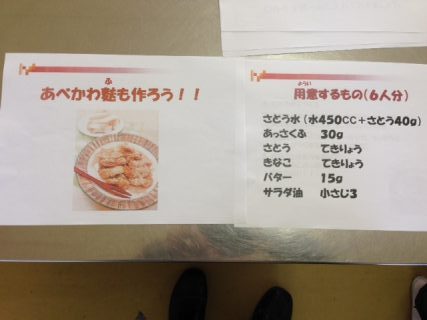 ふ
あべかわ麩も作ろう！！
ようい
用意するもの（６人分）
さとう水（水450CC＋さとう40g）
あっさくふ　30g
さとう　てきりょう
きなこ　てきりょう
バター　15g
サラダ油　小さじ3